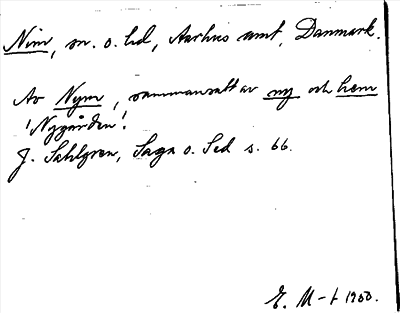 Nim, sn. o. hd, Aarhus amt, Danmark.
Av Nym, sammansatt av ny och hem
'Nygården'.
J. Sahlgren, Saga o. Sed s. 66.
E. M-t 1950.